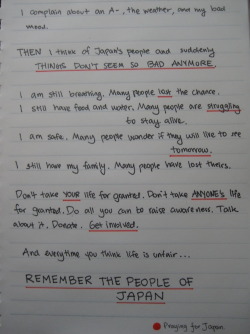 I complain about an A-, the weather, and my bad
mood.
THEN I think of Japan's people and suddenly
THINGS DON'T SEEM SO BAD ANYMORE.
I am still breathing. Many people lost the chance.
I still have food and water. Many people are struggling
to stay alive.
I am safe. Many people wonder if they will live to see
tomorrow.
I still have my family. Many people have lost theirs.
Don't take YOUR life for granted. Don't take ANYONE's life
for granted. Do all you can to raise awareness. Talk
about it. Donate. Get involved.
And everytime you think life is unfair...
REMEMBER THE PEOPLE OF
JAPAN
Praying for Japan